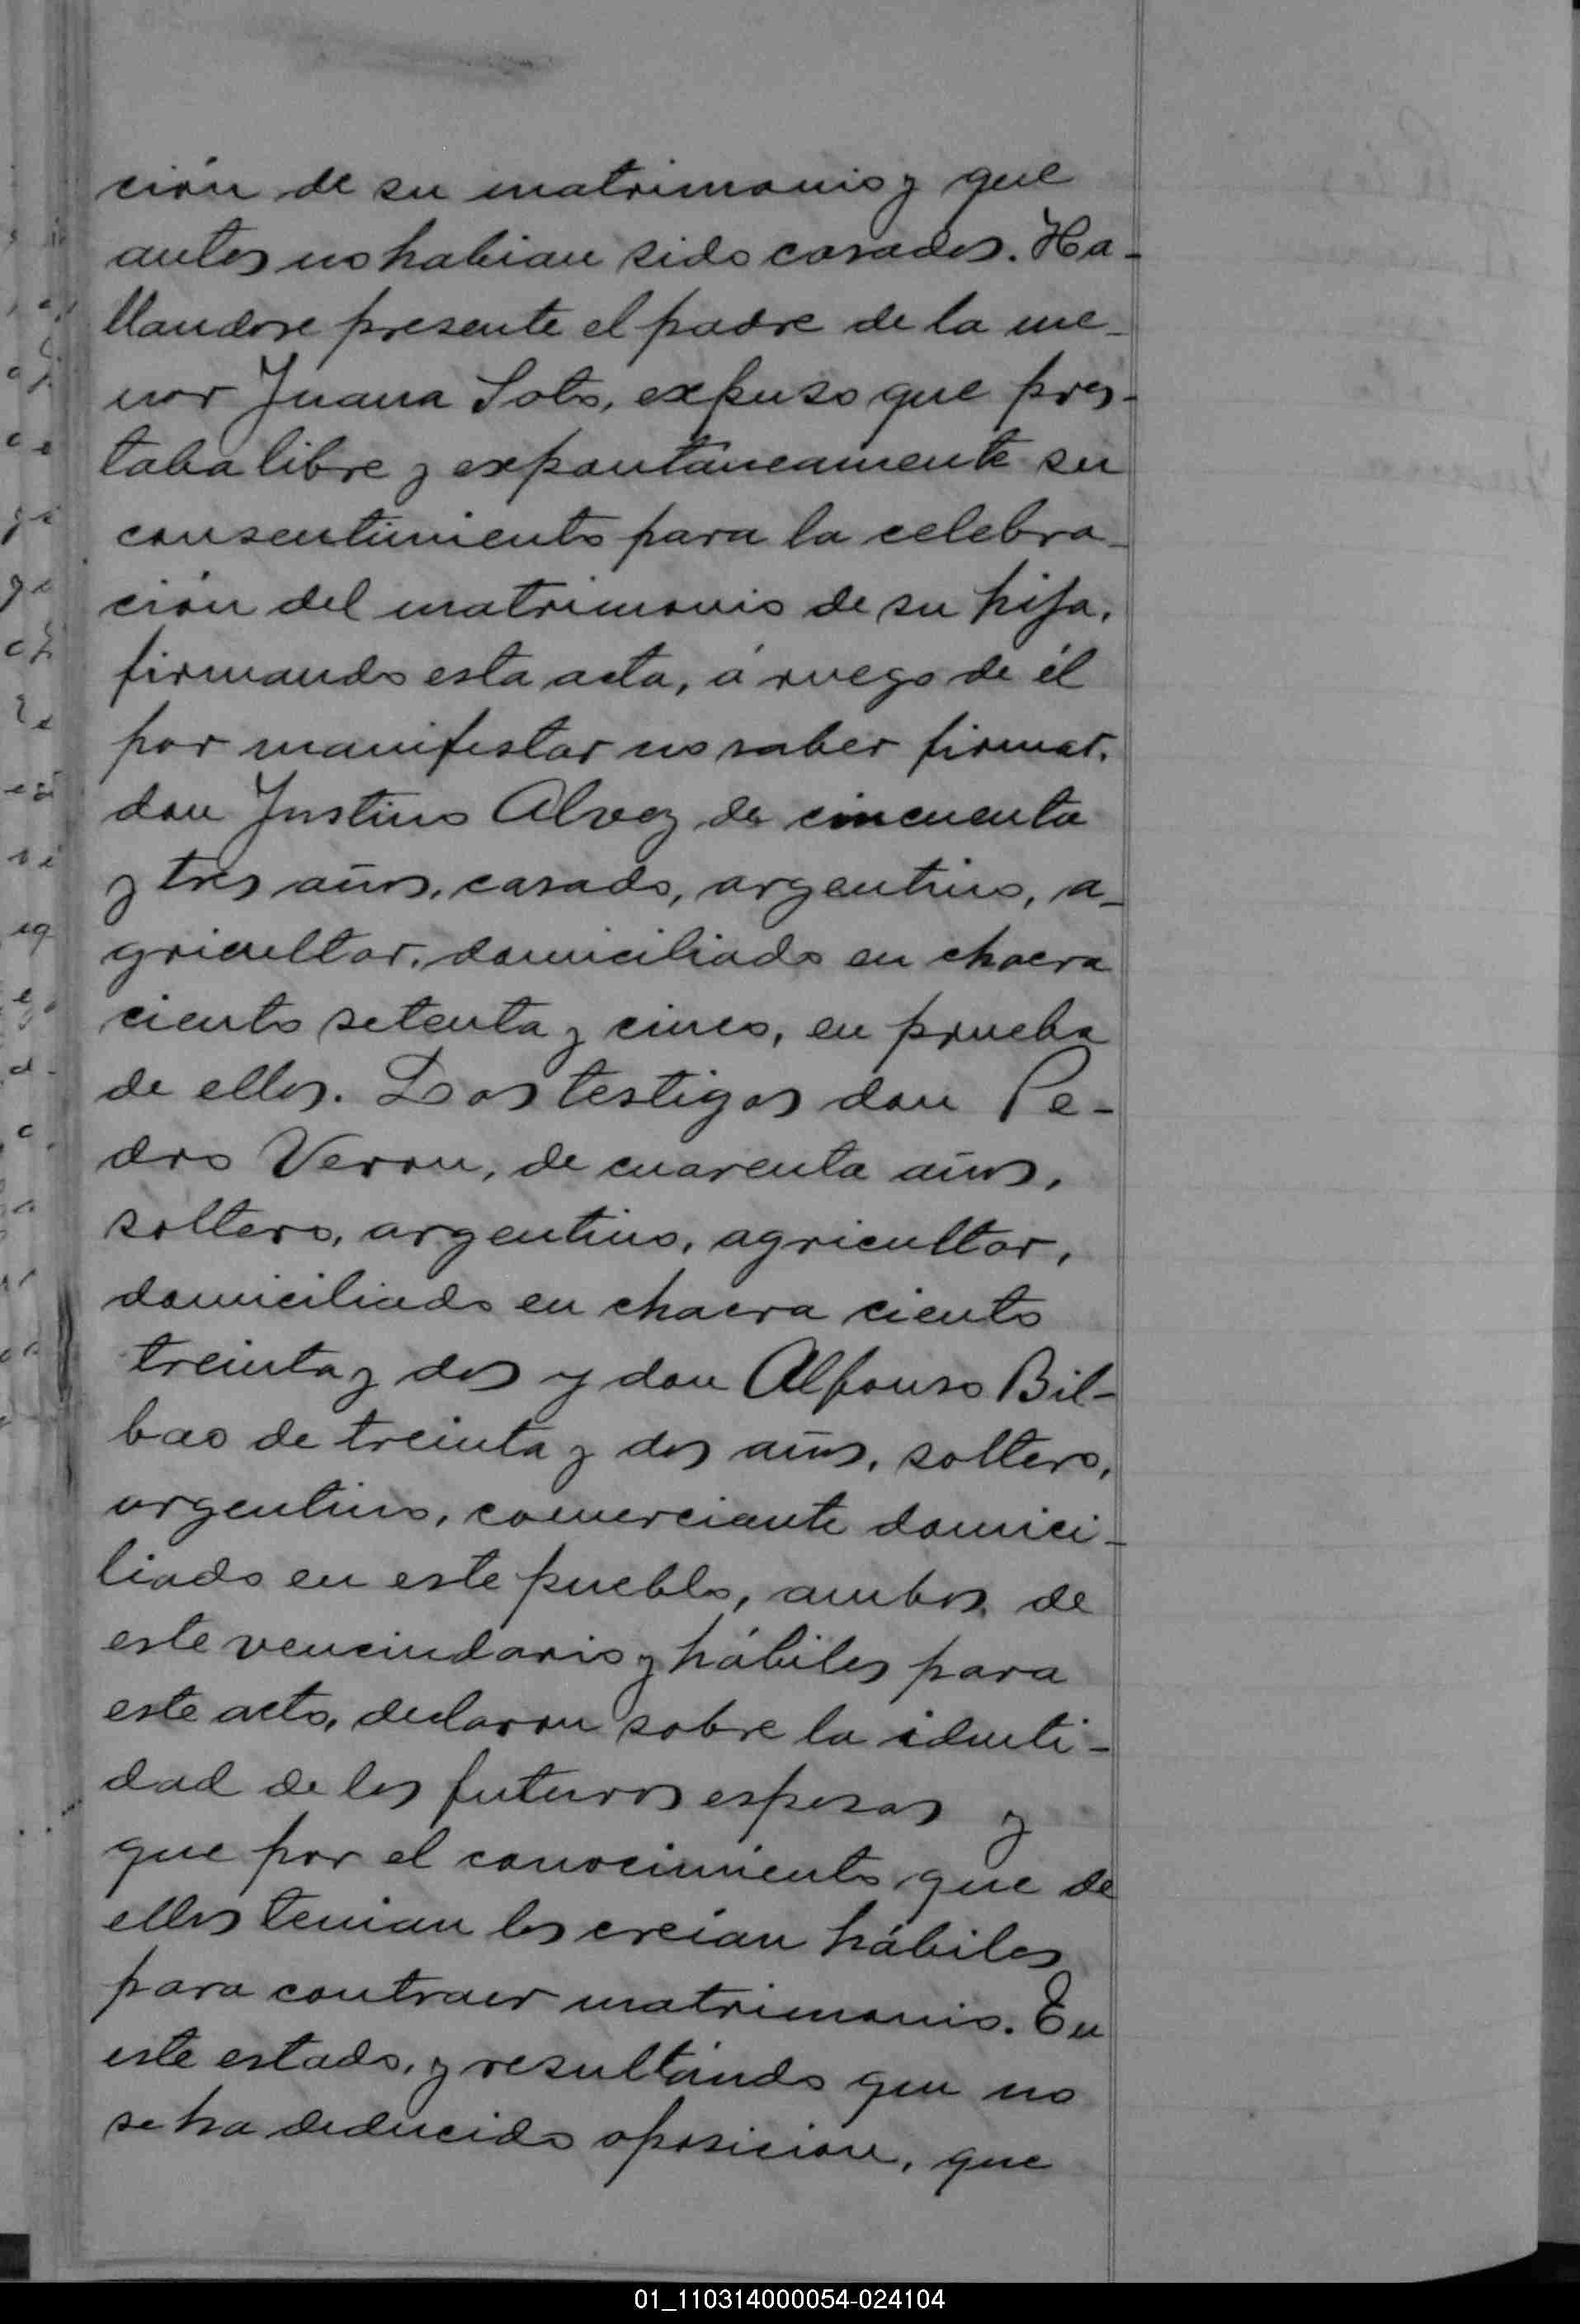 ción de su matrimonio y que
antes no habian sido casados. Ha-
llandose presente el padre de la me-
nor Juana Soto, expuso que pres-
taba libre y expontáneamente su
consentimiento para la celebra-
ción del matrimonio de su hija,
firmando esta acta, á ruego de él
por manifestar no saber firmar,
don Justino Alvez de cincuenta
y tres años, casado, argentino, a-
gricultor, domiciliado en chacra
ciento setenta y cinco, en prueba
de ello. Los testigos don Pe-
dro Veron, de cuarenta años,
soltero, argentino, agricultor,
domiciliado en chacra ciento
treinta y dos y don Alfonso Bil-
bao de treinta y dos años, soltero,
argentino, comerciante domici-
liado en este pueblo, ambos de
este vencindario y hábiles para
este acto, declaron sobre la identi-
dad de los futuros esposos y
que por el conocimiento que de
ellos tenian los creían hábiles
para contraer matrimonio. En
este estado, y resultando que no
se ha deducido oposicion, que
01_110314000054-024104